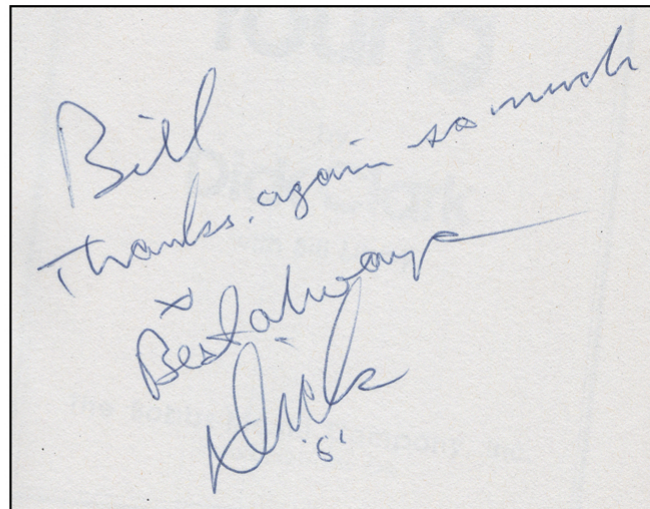 Bill
Thanks, again so much
+
Best always
Dick